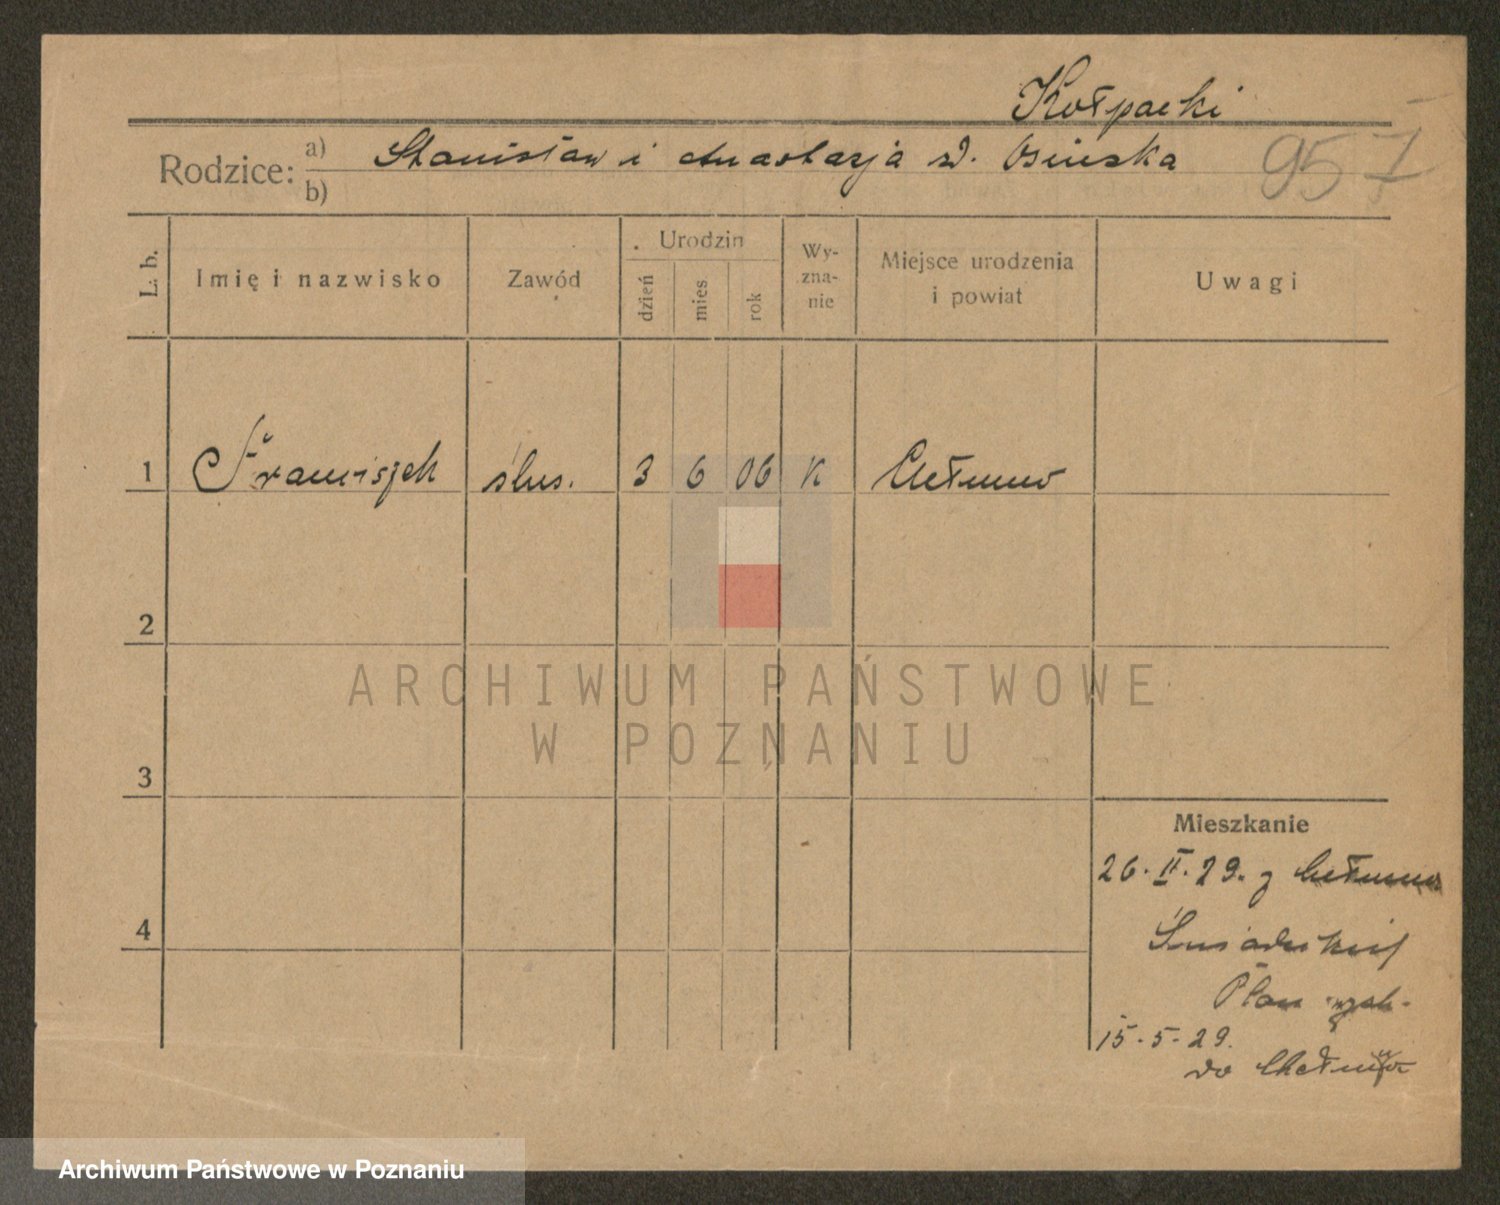 Kołpacki
Rodzice: a) Stanisław i Anastazja d. Osińska
957
b)
L. b.
Imię i nazwisko
Zawód
Urodzin
dzień
mies
rok
Wy-
zna-
nie
Miejsce urodzenia
i powiat
Uwagi
1 Franciszek ślus. 3 6 06 K Chełmno
2
3
4
ARCHIWUM PAŃSTWOWE
W POZNANIU
Mieszkanie
26. II. 29. z Chełmna
Śniadeckich
Plan
15-5-29.
do Chełmna
Archiwum Państwowe w Poznaniu